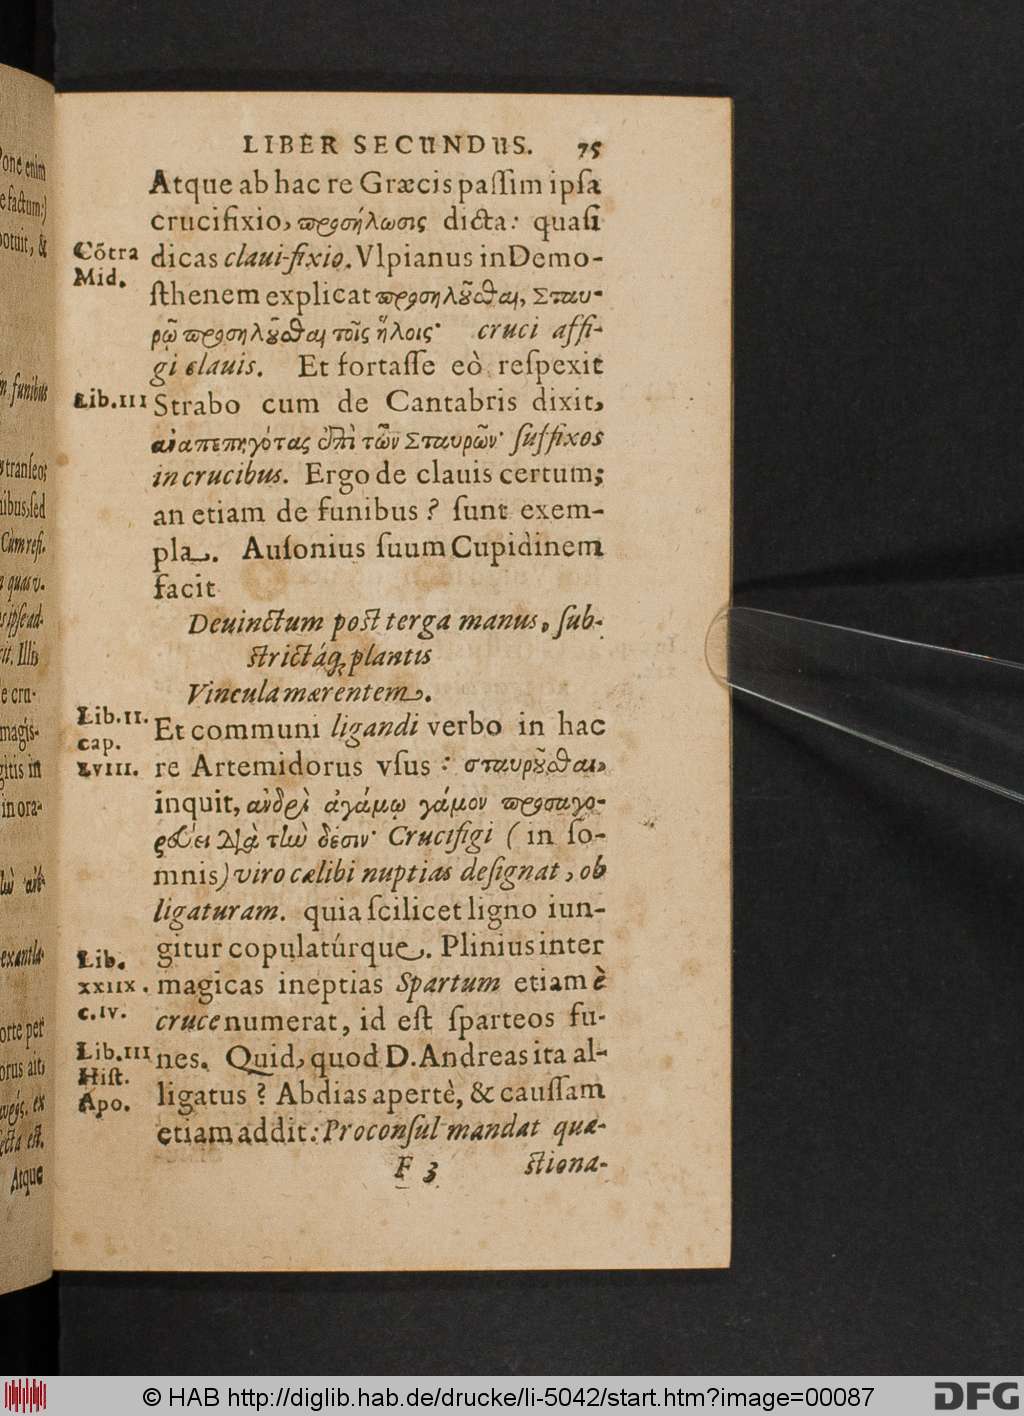 LIBER SECUNDUS. 75
Atque ab hac re Græcis paſſim ipſa
crucifixio, προσήλωσις dicta: quaſi
Cõtra
Mid.
dicas claui-fixio. Vlpianus in Demo-
ſthenem explicat προσηλοῦσθαι, Σταυ-
ρῷ προσηλοῦσθαι τοῖς ἥλοις· cruci affi-
gi clauis. Et fortaſſe eò reſpexit
Lib.III
Strabo cum de Cantabris dixit,
ἀναπεπηγότας ἐπὶ τῶν Σταυρῶν· ſuffixos
in crucibus. Ergo de clauis certum;
an etiam de funibus? ſunt exem-
pla. Auſonius ſuum Cupidinem
facit
Deuinctum post terga manus, ſub-
ſtrictáq; plantis
Vincula mærentem.
Lib.II.
cap.
LVIII.
Et communi ligandi verbo in hac
re Artemidorus vſus: σταυροῦσθαι,
inquit, ἀνδρὶ ἀγάμῳ γάμον προσαγο-
ρεύει διὰ τὴν δέσιν· Crucifigi (in ſo-
mnis) viro cælibi nuptias deſignat, ob
ligaturam. quia ſcilicet ligno iun-
gitur copulatúrque. Plinius inter
Lib.
XXIIX.
c.IV.
magicas ineptias Spartum etiam è
cruce numerat, id eſt ſparteos fu-
Lib.III
Hiſt.
Apo.
nes. Quid, quod D. Andreas ita al-
ligatus? Abdias apertè, & cauſſam
etiam addit: Proconſul mandat quæ-
F 3 ſtiona-
Pone enim
e factum:)
potuit, &
in funibus
tranſeo;
nibus, ſed
Cùm refi.
a quas v.
ipſe ad-
it. Illi,
e cru-
magis-
gitis in
in ora-
exantla-
orte per
orus ait,
ecta eſt.
Atque
© HAB http://diglib.hab.de/drucke/li-5042/start.htm?image=00087
DFG